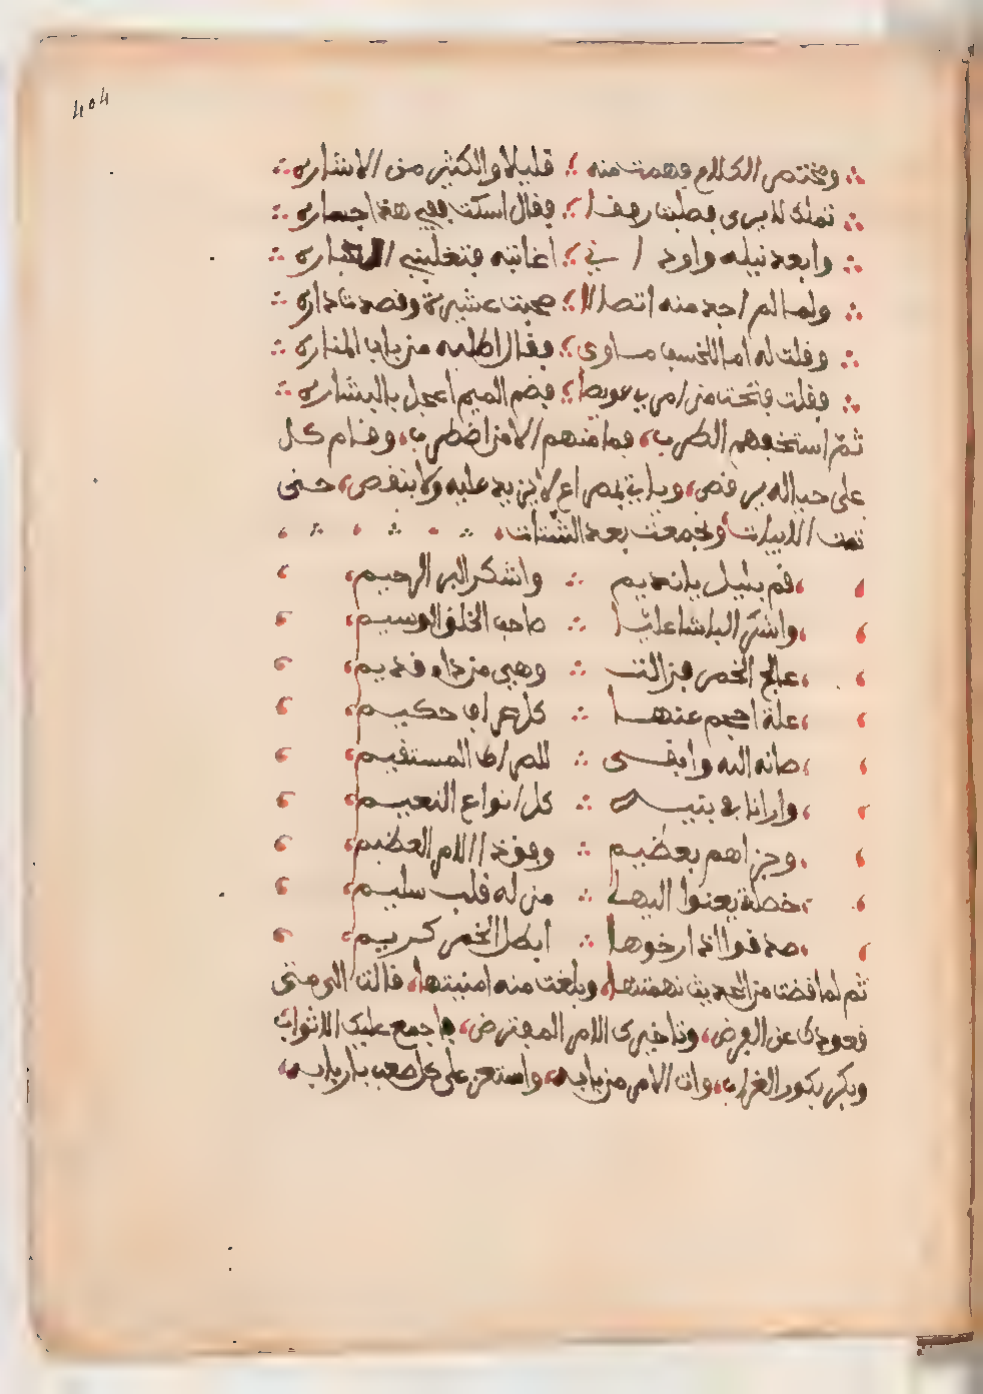 404
ومختصر الكلام فهمت منه ∴ قليلا والكثير من الاشاره
تملك لا يرى فطلبت رهفا ∴ فقال اسكت ففي هذا جساره
وابعد نيله واود اني ∴ اعاتبه فتغلبني
ولما لم اجد منه اتصالا ∴ صحبت عشيره وقصدت داره
وقلت له اما للخسف مساوى ∴ فقال اطلبه من باب المناره
فقلت فتحت من امري عويصا ∴ فضم الميم اعجل بالبشاره
ثم استخفهم الطرب، فما منهم الا من اضطرب، وقام كل
على حياله يرقص، وياتي بمصراع لا يزيد عليه ولا ينقص، حتى
تمت الابيات وتجمعت بعد الشتات،
قم بليل يا نديم ∴ واشكر البر الرحيم،
واشكر الباشا عليا ∴ صاحب الخلق الوسيم،
عالج الخمر فزالت ∴ وهي من داء قديم،
علة احجم عنها ∴ كل عراف حكيم،
صانه الله وابقى ∴ للصراط المستقيم،
وارانا في بنيه ∴ كل انواع النعيم،
وجزاهم بعظيم ∴ وفوق الامر العظيم،
خصلة يعنوا اليها ∴ من له قلب سليم،
صدقوا اذ ارخوها ∴ ابطل الخمر كريم،
ثم لما قضت من الحديث نهمتها، وبلغت منه امنيتها، قالت الى متى
قعودك عن الغرض، وتاخيرك الامر المفترض، فاجمع عليك الاثواب
وبكر بكور الغراب، وات الامر من بابه، واستعن على كل صعب باربابه،